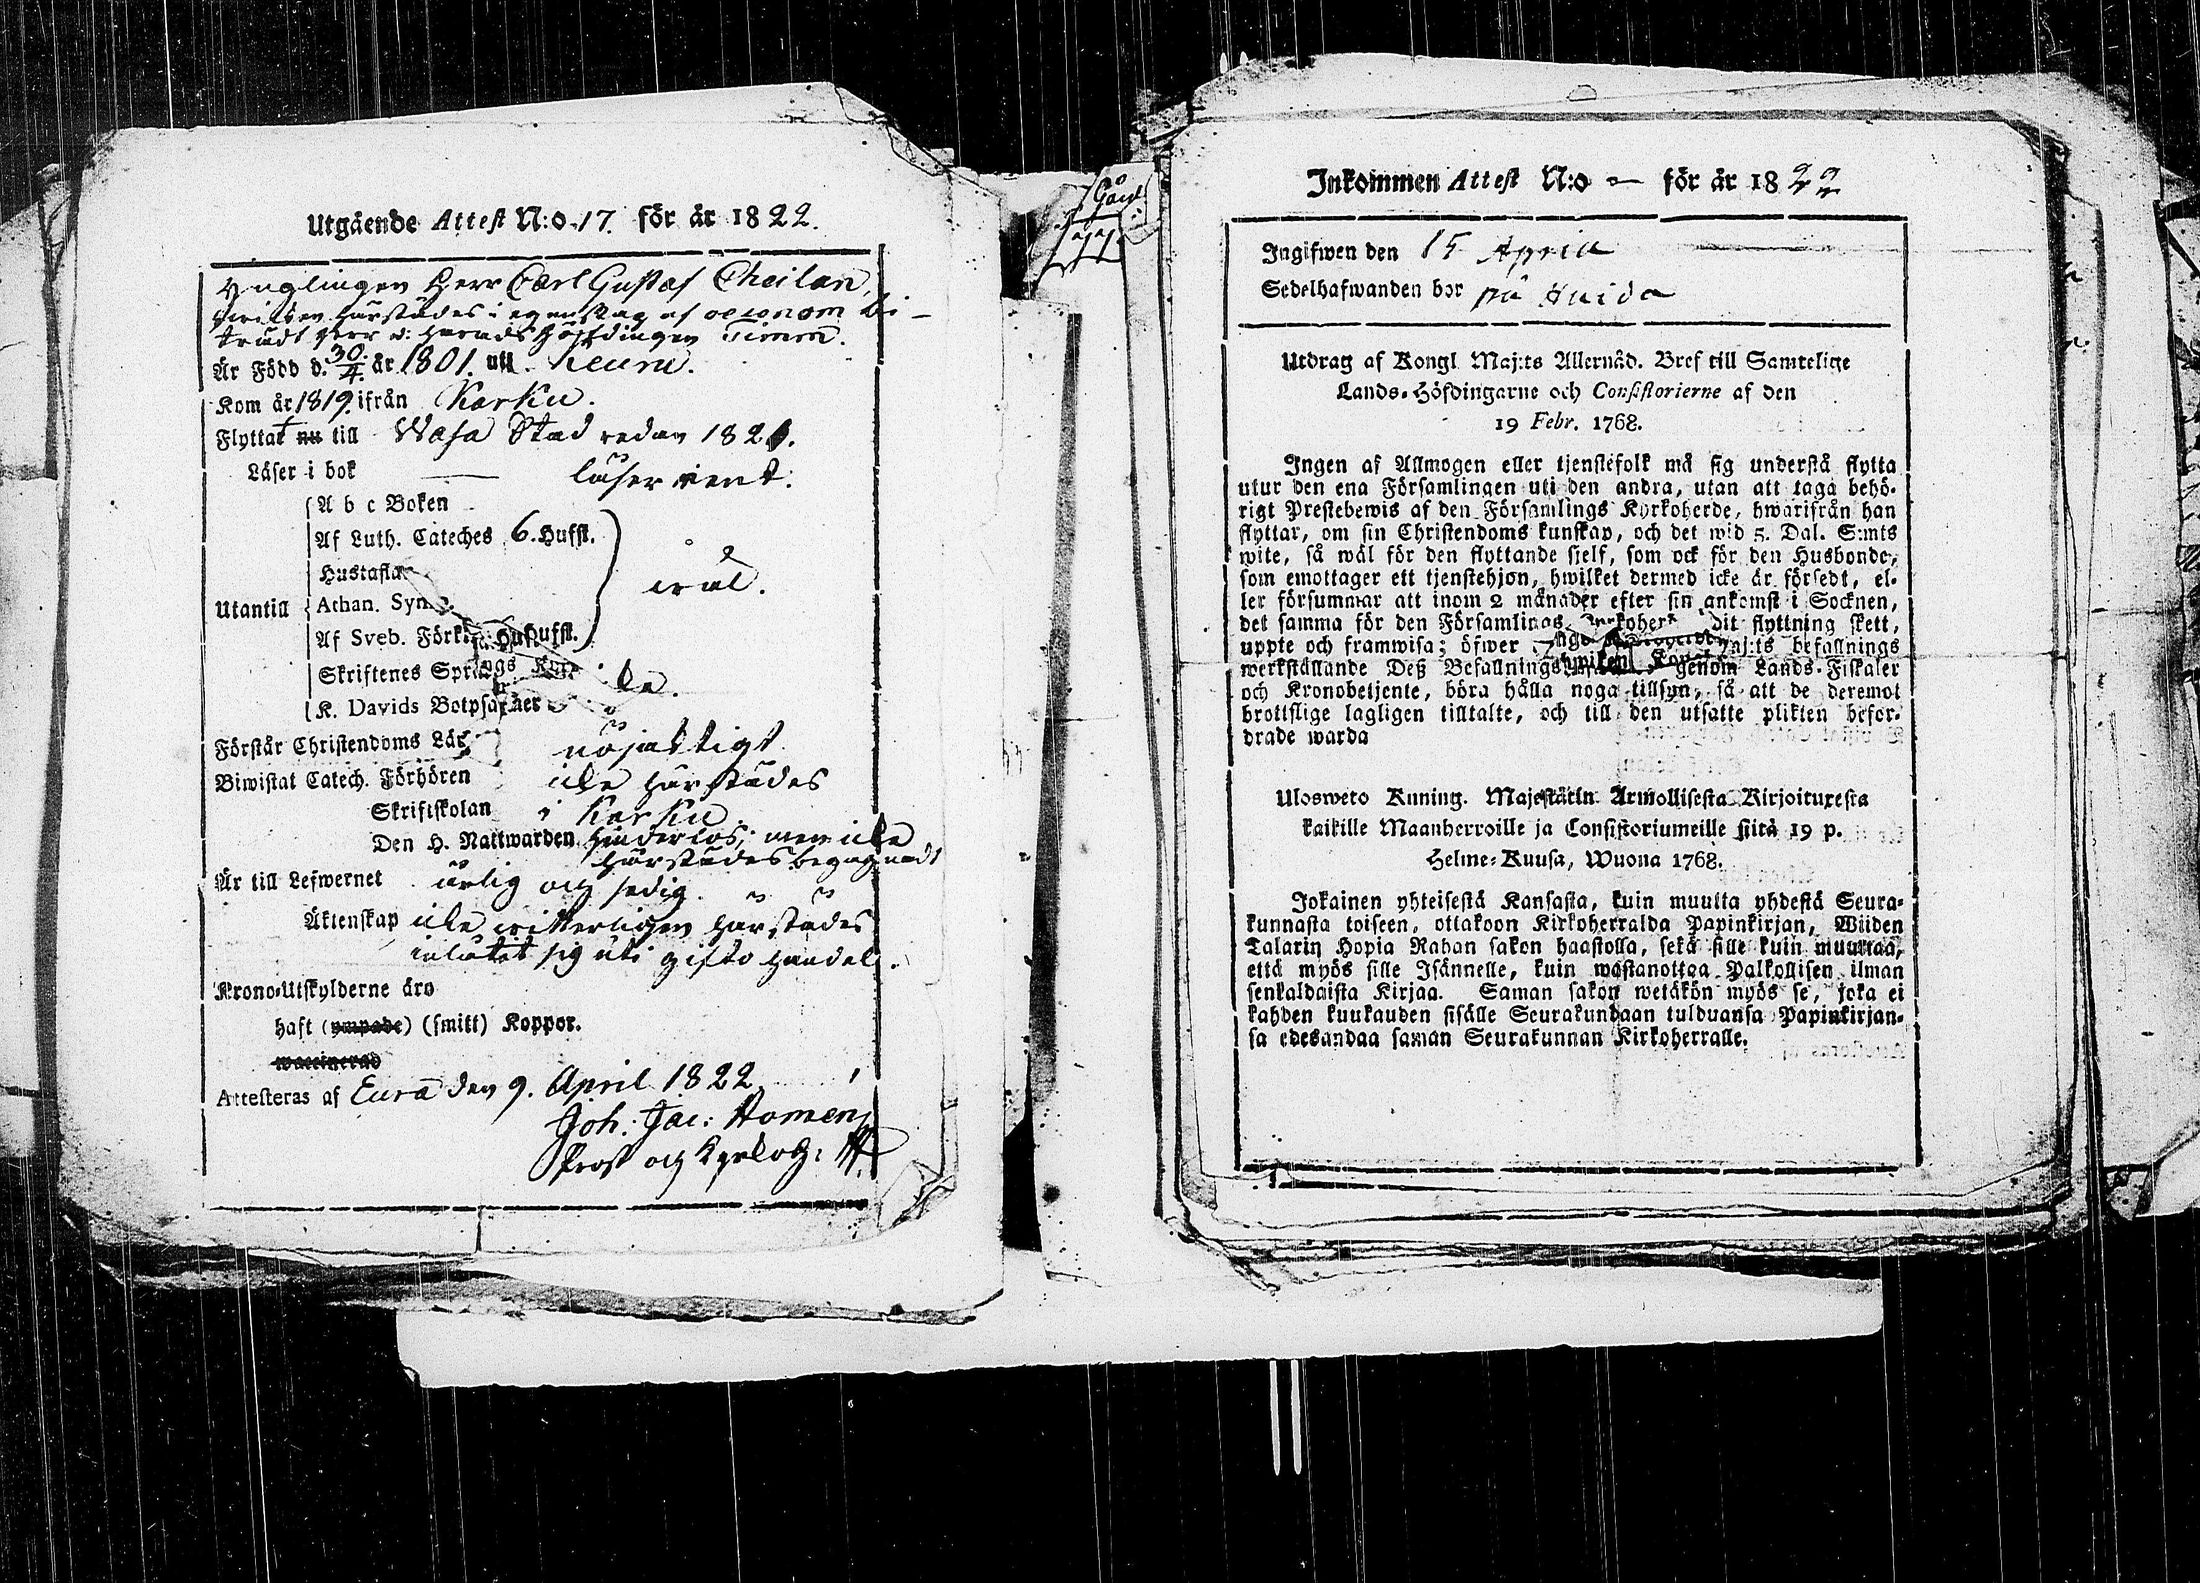 Utgående Attest N:o 17. för år 1822.
Ynglingen Herr Carl Gustaf Cheilan,
härstädes i egenskap af oeconom bi-
trädt Herr v: Härads Höfdingen Timm.
Är Född d. 30/4. år 1801. uti Keuru.
Kom år 1819. ifrån Karku.
Flyttat nu till Wasa Stad redan 1821.
Läser i bok — läser rent.
A b c Boken
Af Luth. Cateches 6. Hufst.
Hustaflan
wäl.
Utantill Athan. Sym
Af Sveb. Förkl. Hufst.
Skriftenes Språk
K. Davids Botpsalmer
Förstår Christendoms Lär. nöjaktigt
Biwistat Catech. Förhören icke härstädes
Skriftskolan i Karku.
Den H. Nattwarden hinderlös; men icke
härstädes begagnadt
Är till Lefwernet ärlig och sedig
Äktenskap icke witterligen härstädes
inlåtit sig uti gifto handel.
Krono-Utskylderne äro
haft (ympade) (smitt) Koppor.
waccinerad
Attesteras af Eura den 9. April 1822
Joh: Jac: Homen
Prost och Kyrkoh:
Inkommen Attest N:o — för år 1822
Ingifwen den 15 April
Sedelhafwanden bor på
Utdrag af Kongl Maj:ts Allernåd. Bref till Samtelige
Lands-Höfdingarne och Consistorierne af den
19 Febr. 1768.
Ingen af Allmogen eller tjenstefolk må sig understå flytta
utur den ena Församlingen uti den andra, utan att taga behö-
rigt Prestebewis af den Församlings Kyrkoherde, hwarifrån han
flyttar, om sin Christendoms kunskap, och det wid 5. Dal. S:mts
wite, så wäl för den flyttande sjelf, som ock för den Husbonde,
som emottager ett tjenstehjon, hwilket dermed icke är försedt, el-
ler försummar att inom 2 månader efter sin ankomst i Socknen,
det samma för den Församlings dit flyttning skett,
uppte och framwisa; öfwer Maj:ts befallnings
werkställande Deß Befallnings genom Lands-Fiskaler
och Kronobetjente, böra hålla noga tillsyn, så att de deremot
brottslige lagligen tilltalte, och till den utsatte plikten befor-
drade warda
Ulosweto Kuning. Majestätin Armollisesta Kirjoituxesta
kaikille Maanherroille ja Consistoriumeille siitä 19 p.
Helme-Kuusa, Wuona 1768.
Jokainen yhteisestä Kansasta, kuin muutta yhdestä Seura-
kunnasta toiseen, ottakoon Kirkoherralda Papinkirjan, Wiiden
Talarin Hopia Rahan sakon haastolla, sekä sille kuin muuttaa,
että myös sille Isännelle, kuin wastanottaa Palkollisen ilman
senkaldaista Kirjaa. Saman sakon wetäkön myös se, joka ei
kahden kuukauden sisälle Seurakundaan tulduansa Papinkirjan-
sa edesandaa saman Seurakunnan Kirkoherralle.